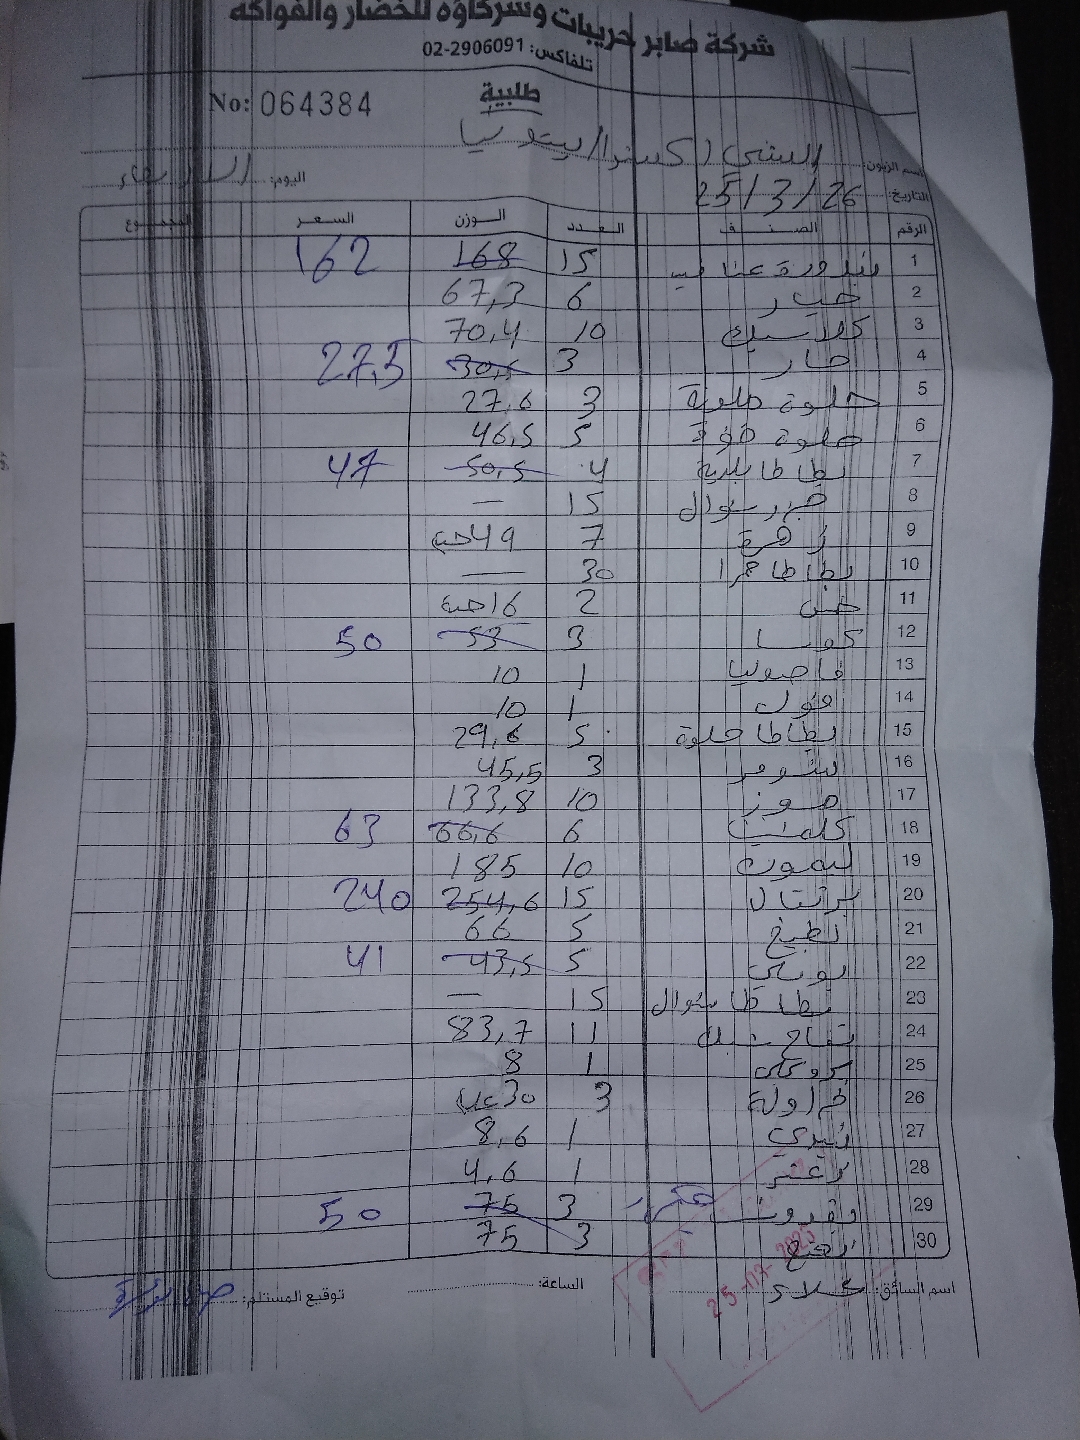 شركة صابر حريبات وشركاؤه للخضار والفواكه
تلفاكس: 02-2906091
طلبية
No: 064384
اسم الزبون:
اليوم: الاربعاء
التاريخ: 25/3/26
الرقم الصنف العدد الوزن السعر المجموع
1 بندورة عناقيد 15 168 162
2 خيار 6 67,3
3 كلاسيك 10 70,4
4 حار 3 30,5 27,5
5 حلوة ملونة 3 27,6
6 حلوة 5 46,5
7 بطاطا بلدية 4 50,5 47
8 جزر شوال 15 —
9 زهرة 7 49 حبة
10 بطاطا حمرا 30 —
11 خس 2 16 حبة
12 كوسا 3 53 50
13 فاصوليا 1 10
14 فول 1 10
15 بطاطا حلوة 5 29,6
16 شومر 3 45,5
17 موز 10 133,8
18 كلمنتينا 6 66,6 63
19 ليمون 10 185
20 برتقال 15 254,6 240
21 بطيخ 5 66
22 بوملي 5 43,5 41
23 بطاطا شوال 15 —
24 تفاح 11 83,7
25 بروكلي 1 8
26 فراولة 3 30
27 1 8,6
28 زعتر 1 4,6
29 3 75 50
30 3 75
اسم السائق: الساعة: توقيع المستلم:
25-03-2025